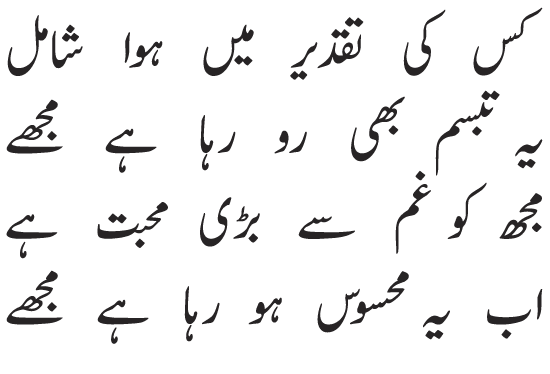 کس کی تقدیر میں ہوا شامل
یہ تبسم بھی رو رہا ہے مجھے
مجھ کو غم سے بڑی محبت ہے
اب یہ محسوس ہو رہا ہے مجھے